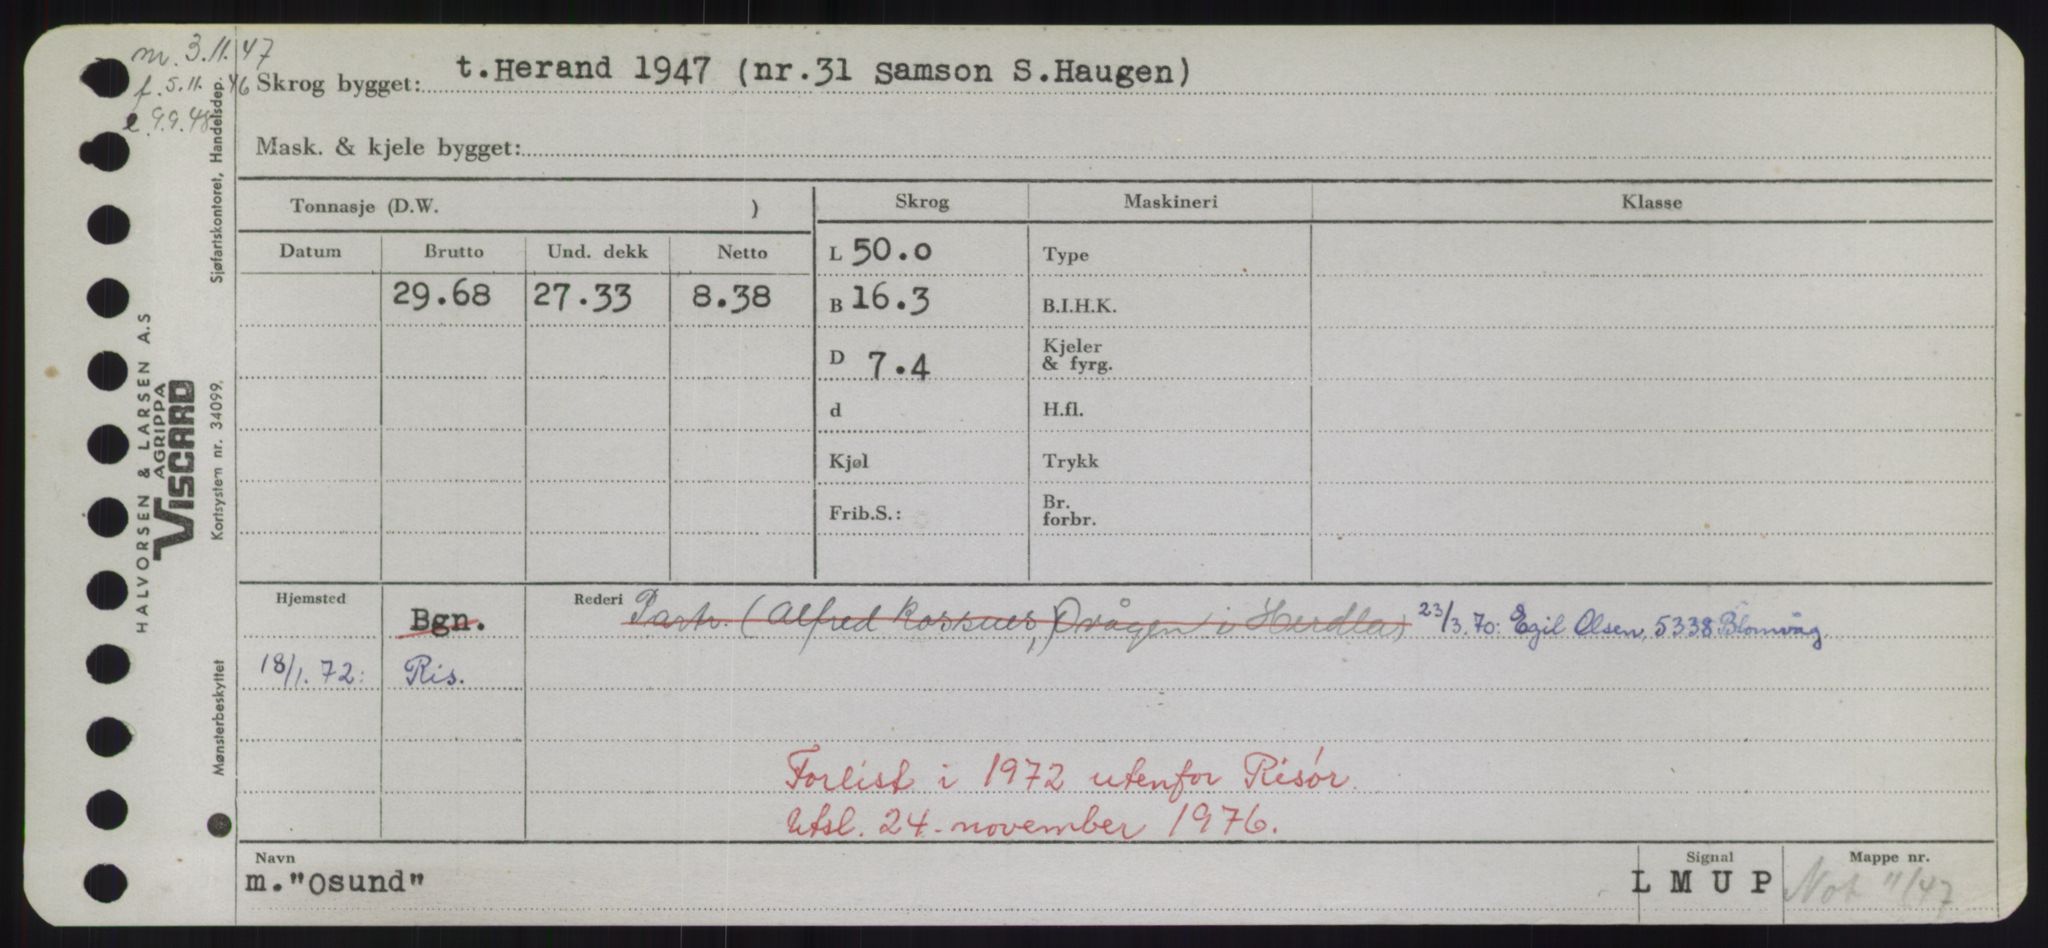 m. 3.11.47
f. 5.11.46
e 9.9.48
Skrog bygget: t.Herand 1947 (nr.31 Samson S.Haugen)
Mask. & kjele bygget:
Tonnasje (D.W. )
Skrog Maskineri Klasse
Datum Brutto Und. dekk Netto
L 50.0 Type
29.68 27.33 8.38
B 16.3 B.I.H.K.
D 7.4 Kjeler & fyrg.
d H.fl.
Kjøl Trykk
Frib.S.: Br. forbr.
Hjemsted Bgn. Rederi Partr. (Alfred Rossnes,) Ovågen i Herdla) 23/3.70: Egil Olsen, 5338 Blomvåg.
18/1.72: Ris.
Forlist i 1972 utenfor Risør.
Utsl. 24. november 1976.
Navn Signal Mappe nr.
m."Osund" L M U P Not 11/47
HALVORSEN & LARSEN A.S
AGRIPPA
VISCARD
Mønsterbeskyttet Kortsystem nr. 34099. Sjøfartskontoret, Handelsdep.